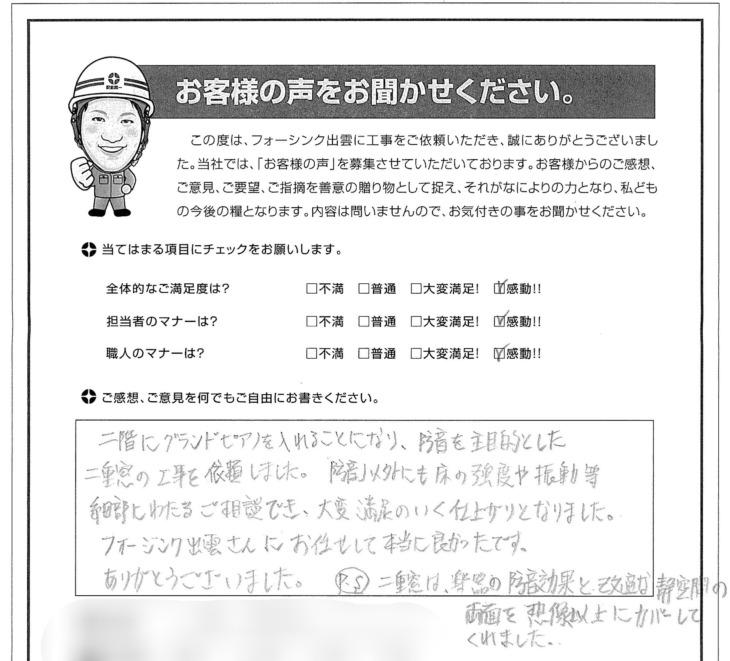 お客様の声をお聞かせください。
この度は、フォーシンク出雲に工事をご依頼いただき、誠にありがとうございまし
た。当社では、「お客様の声」を募集させていただいております。お客様からのご感想、
ご意見、ご要望、ご指摘を善意の贈り物として捉え、それがなによりの力となり、私ども
の今後の糧となります。内容は問いませんので、お気付きの事をお聞かせください。
当てはまる項目にチェックをお願いします。
全体的なご満足度は? □不満 □普通 □大変満足! ☑感動!!
担当者のマナーは? □不満 □普通 □大変満足! ☑感動!!
職人のマナーは? □不満 □普通 □大変満足! ☑感動!!
ご感想、ご意見を何でもご自由にお書きください。
二階にグランドピアノを入れることになり、防音を主目的とした
二重窓の工事を依頼しました。防音以外にも床の強度や振動等
細部にわたるご相談でき、大変満足のいく仕上がりとなりました。
フォーシンク出雲さんにお任せして本当に良かったです。
ありがとうございました。 P.S 二重窓は、楽器の防音効果と快適な静空間の
両面を想像以上にカバーして
くれました。